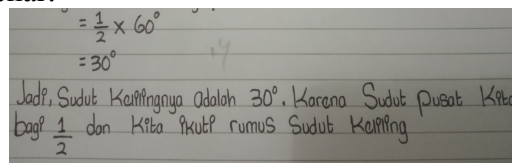 = 1/2 × 60°
= 30°
Jadi, Sudut Kelilingnya adalah 30°. Karena Sudut pusat Kita
bagi 1/2 dan Kita ikuti rumus Sudut Keliling